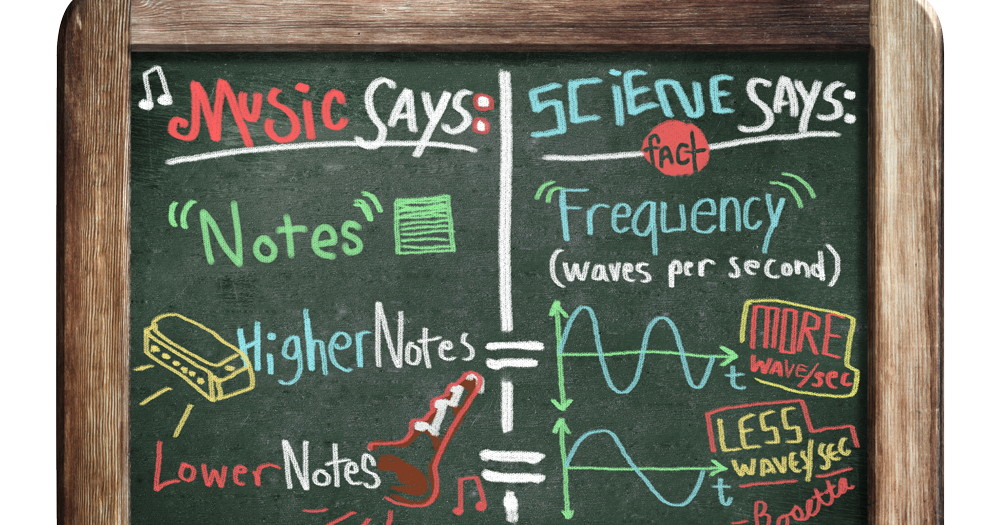 Music SAYS:
"Notes"
Higher Notes =
Lower Notes =
SCiENE SAYS:
fact
"Frequency"
(waves per second)
t
MORE
WAVE/sec
t
LESS
WAVEY/SEC
-Rosetta